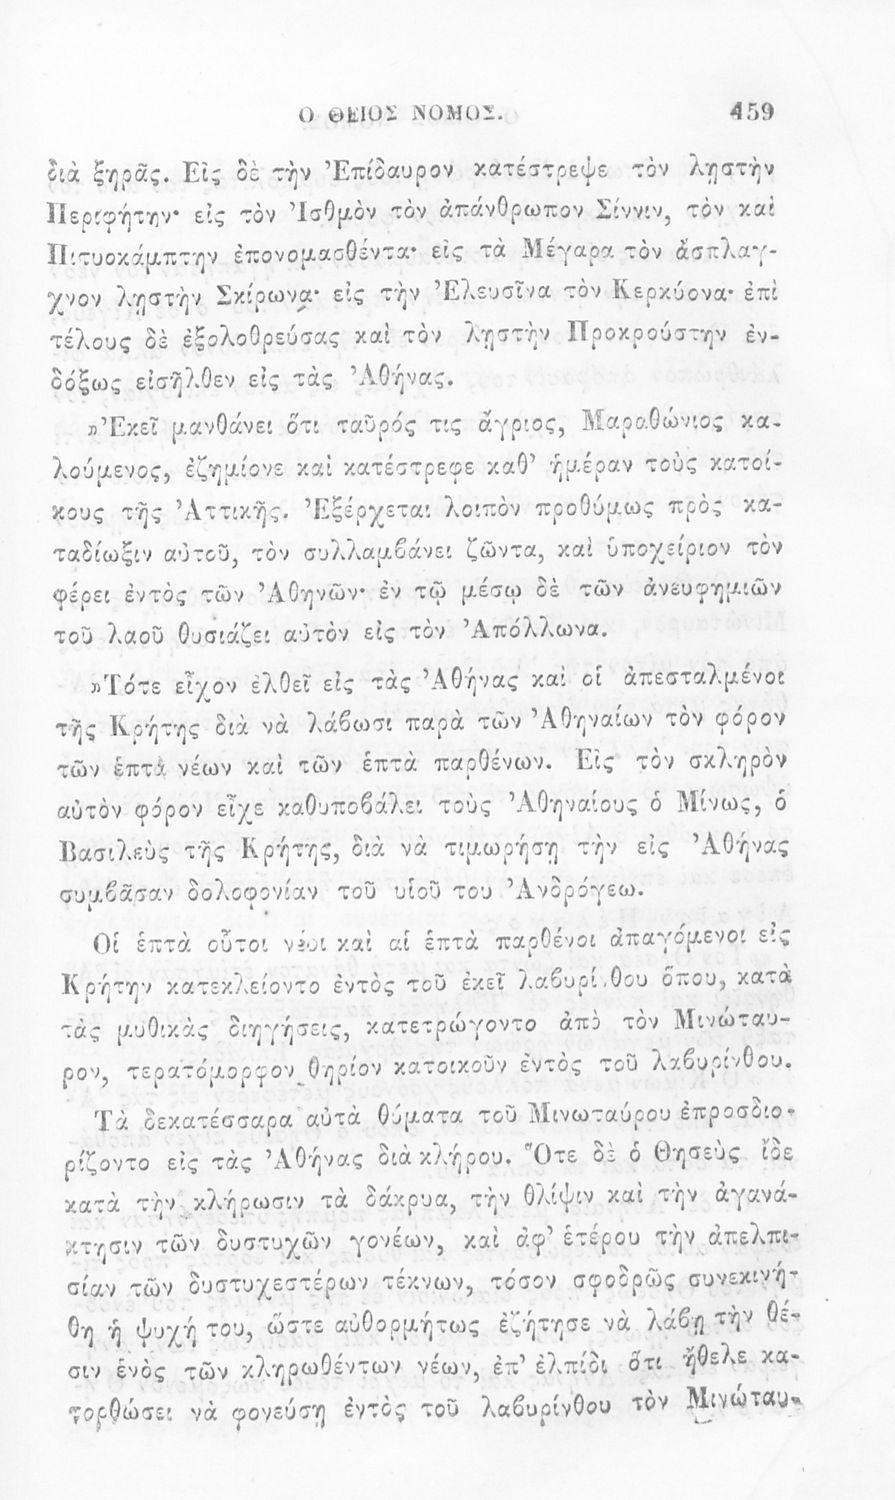 Ο ΘΕΙΟΣ ΝΟΜΟΣ. 459
διὰ ξηρᾶς. Εἰς δὲ τὴν Ἐπίδαυρον κατέστρεψε τὸν λῃστὴν
Περιφήτην· εἰς τὸν Ἰσθμὸν τὸν ἀπάνθρωπον Σίννιν, τὸν καὶ
Πιτυοκάμπτην ἐπονομασθέντα· εἰς τὰ Μέγαρα τὸν ἄσπλαγ-
χνον λῃστὴν Σκίρωνα· εἰς τὴν Ἐλευσῖνα τὸν Κερκύονα· ἐπὶ
τέλους δὲ ἐξολοθρεύσας καὶ τὸν λῃστὴν Προκρούστην ἐν-
δόξως εἰσῆλθεν εἰς τὰς Ἀθήνας.
»Ἐκεῖ μανθάνει ὅτι ταῦρός τις ἄγριος, Μαραθώνιος κα-
λούμενος, ἐζημίονε καὶ κατέστρεφε καθ’ ἡμέραν τοὺς κατοί-
κους τῆς Ἀττικῆς. Ἐξέρχεται λοιπὸν προθύμως πρὸς κα-
ταδίωξιν αὐτοῦ, τὸν συλλαμβάνει ζῶντα, καὶ ὑποχείριον τὸν
φέρει ἐντὸς τῶν Ἀθηνῶν· ἐν τῷ μέσῳ δὲ τῶν ἀνευφημιῶν
τοῦ λαοῦ θυσιάζει αὐτὸν εἰς τὸν Ἀπόλλωνα.
»Τότε εἶχον ἐλθεῖ εἰς τὰς Ἀθήνας καὶ οἱ ἀπεσταλμένοι
τῆς Κρήτης διὰ νὰ λάβωσι παρὰ τῶν Ἀθηναίων τὸν φόρον
τῶν ἑπτὰ νέων καὶ τῶν ἑπτὰ παρθένων. Εἰς τὸν σκληρὸν
αὐτὸν φόρον εἶχε καθυποβάλει τοὺς Ἀθηναίους ὁ Μίνως, ὁ
Βασιλεὺς τῆς Κρήτης, διὰ νὰ τιμωρήσῃ τὴν εἰς Ἀθήνας
συμβᾶσαν δολοφονίαν τοῦ υἱοῦ του Ἀνδρόγεω.
Οἱ ἑπτὰ οὗτοι νέοι καὶ αἱ ἑπτὰ παρθένοι ἀπαγόμενοι εἰς
Κρήτην κατεκλείοντο ἐντὸς τοῦ ἐκεῖ λαβυρίνθου ὅπου, κατὰ
τὰς μυθικὰς διηγήσεις, κατετρώγοντο ἀπὸ τὸν Μινώταυ-
ρον, τερατόμορφον θηρίον κατοικοῦν ἐντὸς τοῦ λαβυρίνθου.
Τὰ δεκατέσσαρα αὐτὰ θύματα τοῦ Μινωταύρου ἐπροσδιο-
ρίζοντο εἰς τὰς Ἀθήνας διὰ κλήρου. Ὅτε δὲ ὁ Θησεὺς ἴδε
κατὰ τὴν κλήρωσιν τὰ δάκρυα, τὴν θλίψιν καὶ τὴν ἀγανά-
κτησιν τῶν δυστυχῶν γονέων, καὶ ἀφ’ ἑτέρου τὴν ἀπελπι-
σίαν τῶν δυστυχεστέρων τέκνων, τόσον σφοδρῶς συνεκινή-
θη ἡ ψυχή του, ὥστε αὐθορμήτως ἐζήτησε νὰ λάβῃ τὴν θέ-
σιν ἑνὸς τῶν κληρωθέντων νέων, ἐπ’ ἐλπίδι ὅτι ἤθελε κα-
τορθώσει νὰ φονεύσῃ ἐντὸς τοῦ λαβυρίνθου τὸν Μινώταυ-